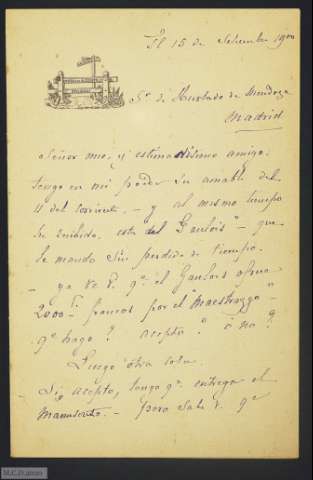 15 de Setiembre 1900
Sr. de Hurtado de Mendoza
Madrid
Señor mio, y estimadísimo amigo:
tengo en mi poder su amable del
11 del corriente. - y al mismo tiempo
he recibido esta del "Gaulois" - que
le mando sin perdida de tiempo. -
- ya ve V. qe. el Gaulois ofrece
2000 francos por el "Maestrazgo" -
qe hago? acepto? ó no?
Luego otra cosa.
Si acepto, tengo qe. entregar el
Manuscrito. - pero sabe V. qe
M.C.D. 2022